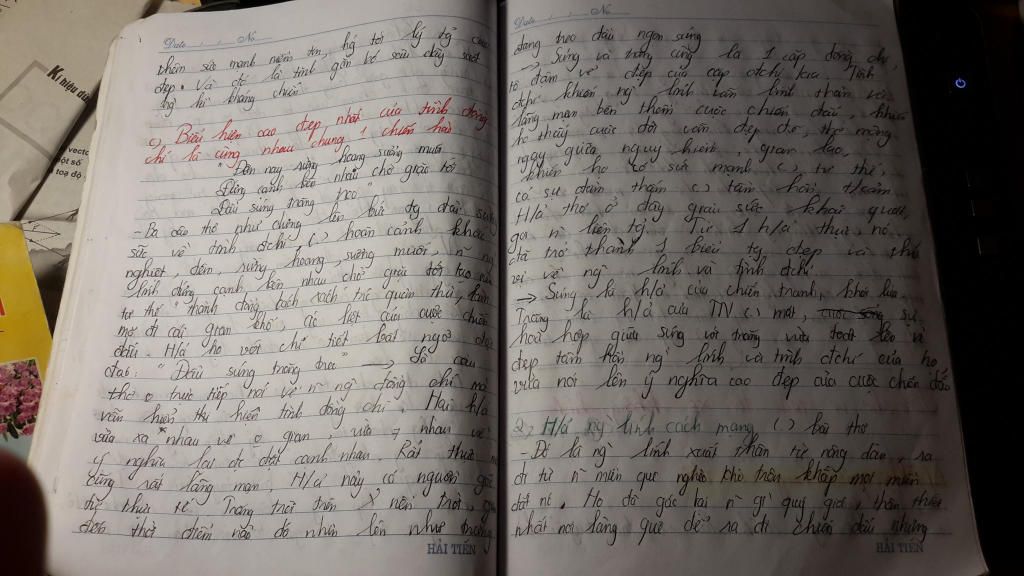 Date No
thêm sức mạnh niềm tin, hg tới lý tg cao
đẹp. Và đc là tình gắn bó sâu dày suốt
c) Biểu hiện cao đẹp nhất của tình đồng
chí là cùng nhau chung 1 chiến hào
"Đêm nay rừng hoang sương muối
Đứng cạnh bên nhau chờ giặc tới
Đầu súng trăng treo"
- Ba câu thơ như dựng lên bức tg đài sừng
sững về tình đchí ( ) hoàn cảnh khắc
nghiệt, đêm, rừng hoang, sương muối, ng
lính đứng cạnh bên nhau chờ giặc tới tạo nên
tư thế thành đồng vách sắt trc quân thù,
mọi gian khổ, ác liệt của cuộc chiến
đấu. H/á họ với chi tiết bất ngờ
: "Đầu súng trăng treo" → Là câu
thơ o trực tiếp nói về ng đồng chí mà
vẫn hiện tình đồng chí. Hai h/á
vừa xa nhau về o gian, vừa ≠ nhau về
ý nghĩa lại đc đặt cạnh nhau. Rất thực mà
cũng rất lãng mạn, H/á này có nguồn gốc
từ thực tế. Trăng trôi trên nền trời,
đến thời điểm nào đó nhìn lên như trăng
HẢI TIẾN
Date No
đang treo đầu ngọn súng
→ Súng và trăng cũng là 1 cặp đồng chí,
tô đậm vẻ đẹp của cặp đchí kia. Tình
đchí khiến ng lính tâm hồn
lãng mạn bên thềm cuộc chiến đấu, khiến
họ thấy cuộc đời vẫn đẹp đẽ, thơ mộng
ngay giữa nguy hiểm, gian lao,
khiến họ có sức mạnh ( ) tư thế,
có sự đằm thắm ( ) tâm hồn, t/cảm.
H/á thơ ở đây giàu sức khái quát,
gợi liên tg. Từ 1 h/á thực, nó
đã trở thành 1 biểu tg đẹp và thú
vị về ng lính và tình đchí.
→ Súng là h/á của chiến tranh, khói lửa.
Trăng là h/á của TN ( ) mát, sự
hoà hợp giữa súng với trăng vừa toát lên vẻ
đẹp tâm hồn ng lính và tình đchí của họ
vừa nói lên ý nghĩa cao đẹp của cuộc chiến đấu
2, H/á ng lính cách mạng ( ) bài thơ
- Đó là ng lính xuất thân từ nông dân, ra
đi từ miền quê nghèo khó trên khắp mọi miền
đất nc. Họ đã gác lại gì quý giá, thân thiết
nhất nơi làng quê để ra đi chiến đấu nhưng
HẢI TIẾN
Kí hiệu
vectơ
một số
toạ độ